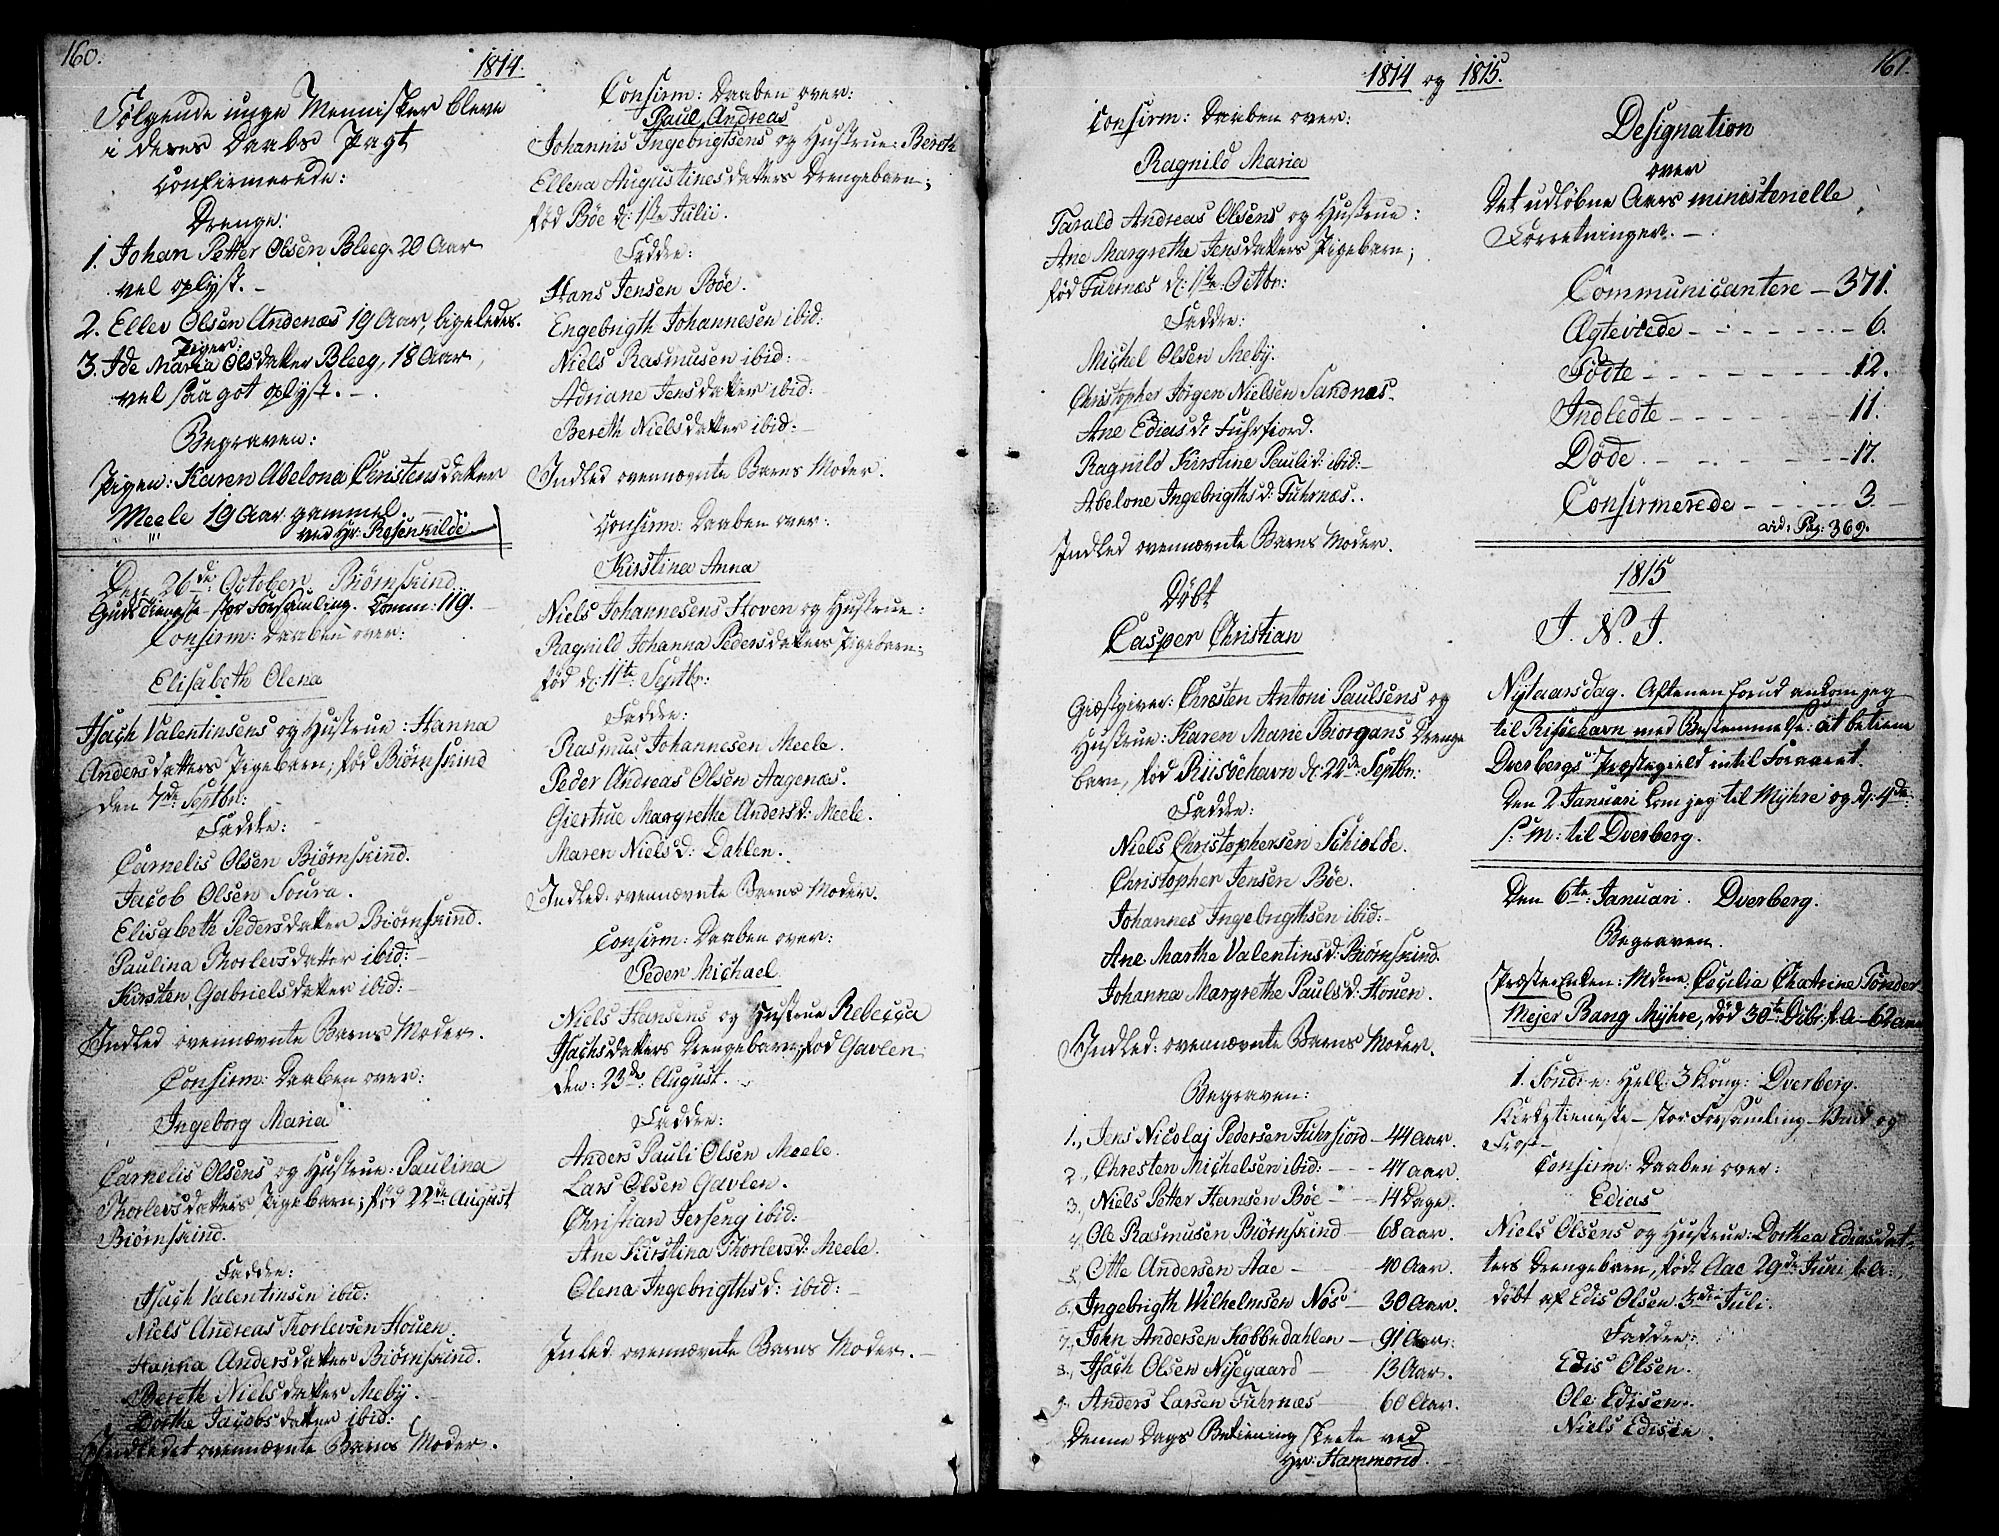 160.
1814.
Følgende unge Mennisker bleve
i deres Daabs Pagt
Confirmerede:
Drenge:
1. Johan Petter Olsen Bleeg. 20 Aar
vel oplyst. -
2. Eller Olsen Andenæs 19 Aar, ligeledes.
Piger:
3. Ide Maria Olsdatter Bleeg, 18 Aar,
vel og got oplyst. -
Begraven:
Pigen: Karen Abelona Christensdatter
Meele 19 Aar gammel.
ved Hr: Rosenkilde
Den 26de October Biørnskind
Gudstieneste - stor Forsamling. Comm: 119. -
Confirm: Daaben over:
Elisabeth Olena
Isach Valentinsens og Hustrue: Hanna
Andersdatters Pigebarn; fød Biørnskind
den 7de Septbr:
Faddre:
Carnelis Olsen Biørnskind.
Jacob Olsen Soura.
Elisabeth Pedersdatter Biørnskind.
Paulina Thorlevsdatter ibid: -
Kirsten Gabrielsdatter ibid: -
Indled ovennævnte Barns Moder.
Confirm: Daaben over:
Ingeborg Maria
Carnelis Olsens og Hustrue: Paulina
Thorlevsdatters Pigebarn; fød 22de August
Biørnskind.
Faddre:
Isach Valentinsen ibid:
Niels Andreas Thorlevsen Houen
Hanna Andersdatter Biørnskind.
Bereth Nielsdatter Meby. -
Dorthe Jacobsdatter ibid:
Indledet ovennævnte Barns Moder.
Confirm: Daaben over:
Paul Andreas
Johannis Ingebrigtsens og Hustrue: Bereth
Ellena Augustinesdatters Drengebarn;
fød Bøe d: 1ste Julii.
Faddre:
Hans Jensen Bøe.
Engebrigth Johannesen ibid:
Niels Rasmusen ibid: -
Adriane Jensdatter ibid:
Bereth Nielsdatter ibid: -
Indled ovennævnte Barns Moder.
Confirm: Daaben over:
Kirstina Anna
Niels Johannesens Hoven og Hustrue:
Ragnild Johanna Pedersdatters Pigebarn;
fød d: 11te Septbr:
Faddre:
Rasmus Johannesen Meele.
Peder Andreas Olsen Aagenæs.
Giertrue Margrethe Andersd: Meele.
Maren Nielsd: Dahlen.
Indled: ovennævnte Barns Moder.
Confirm: Daaben over:
Peder Michael
Niels Hansens og Hustrue Rebecca
Isachsdatters Drengebarn; fød Gavlen
den: 23de August.
Faddre:
Anders Pauli Olsen Meele.
Lars Olsen Gavlen.
Christian Jerseng ibid:
Ane Kirstina Thorlevsd: Meele.
Olena Ingebrigthsd: ibid: -
Inled: ovennævnte Barns Moder. -
1814 og 1815.
161.
Confirm: Daaben over:
Ragnild Maria
Tarald Andreas Olsens og Hustrue:
Ane Margrethe Jensdatters Pigebarn;
fød Fuhrnæs d: 1ste Octbr:
Faddre:
Michel Olsen Meby.
Christopher Jørgen Nielsen Sandnæs.
Ane Ediasdr Fuhrfiord.
Ragnild Kirstine Paulid: ibid: -
Abelone Ingebrigthsd: Fuhrnæs..
Indled ovennævnte Barns Moder.
Døbt
Casper Christian
Giæstgiver: Christen Antoni Paulsens og
Hustrue: Karen Marie Biorgans Drenge
barn, fød Riisøehavn d: 22de Septbr:
Faddre:
Niels Christophersen Schiolde.
Christopher Jensen Bøe.
Johannes Ingebrigthsen ibid: -
Ane Marthe Valentinsd: Biørnskind.
Johanna Margrethe Paulsd: Houen.
Indled: ovennævnte Barns Moder.
Begraven:
1., Jens Nicolaj Pedersen Fuhrfiord - 44 Aar.
2., Christen Michelsen ibid: - - - 47 aar.
3., Niels Petter Hansen Bøe - - 14 Dage.
4, Ole Rasmusen Biørnskind - 68 aar.
5, Otte Andersen Aae - 40 Aar.
6., Ingebrigth Wilhelmsen Nøs - 30 Aar.
7., John Andersen Kobbedahlen - 91 Aar:
8., Isach Olsen Nyegaard - 13 Aar.
9. Anders Larsen Fuhrnæs - 60 Aar.
Denne Dags Betiening skeete ved
Hr: Hammond.
Designation
over
Det udløbne Aars ministerielle
Forretninger. -
Communicantere - 371.
Ægteviede - - - - - - 6.
Fødte - - - - - - 12.
Indledte - - - - - 11.
Døde. - - - - - 17.
Confirmerede - - - - 3.
vid: Pag: 369.
1815
I. N. J.
Nytaarsdag. Aftenen forud ankom jeg
til Risøehavn med Bestemmelse: at betiene
Dverbergs Præstegield intil Foraaret.
Den 2 Januari kom jeg til Myhre og d: 4de
s: m: til Dverberg.
Den 6te Januari. Dverberg.
Begraven.
Præste Enken: Mdme Cecilia Chatrine Tønder
Mejer Bang Myhre, død 30te Dcbr. f. A - 62 aar
1. Søndr. e: Hell: 3 Kong: Dverberg.
Kirketieneste - stor Forsamling - Vind og
Frost -
Confirm: Daaben over:
Edias
Niels Olsens og Hustrue: Dorthea Ediasdat-
ters Drengebarn, født Aae 29de Juni f. A:
døbt af Edis Olsen 3die Juli.
Faddre:
Edis Olsen.
Ole Edisen.
Niels Edisen.